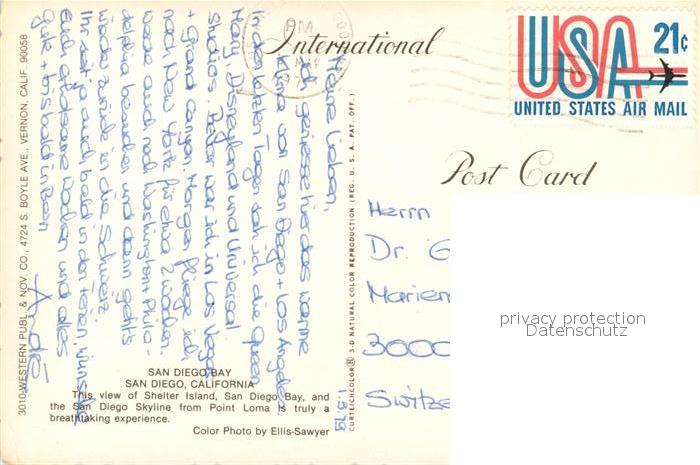 International
Post Card
PM
MAY
USA 21¢
UNITED STATES AIR MAIL
Meine Lieben,
Ich geniesse hier das warme
Klima von San Diego + Los Angeles
in den letzten Tagen sah ich die Queen
Mary, Disneyland und Universal
Studios. Vorher war ich in Las Vegas
+ Grand Canyon. Morgen fliege ich
nach New York für etwa 2 Wochen.
werde auch noch Washington + Phila-
delphia besuchen und dann geht's
wieder zurück in die Schweiz
Ihr seid ja auch bald in den Ferien, wünsche
Euch erholsame Wochen und alles
Gute + bis bald in Bern
André
1.5.73
Herrn
Dr. G
Marien
3000
Switze
privacy protection
Datenschutz
SAN DIEGO BAY
SAN DIEGO, CALIFORNIA
This view of Shelter Island, San Diego Bay, and
the San Diego Skyline from Point Loma is truly a
breathtaking experience.
Color Photo by Ellis-Sawyer
3010-WESTERN PUBL. & NOV. CO., 4724 S. BOYLE AVE., VERNON, CALIF. 90058
CURTEICHCOLOR® 3-D NATURAL COLOR REPRODUCTION (REG. U. S. A. PAT. OFF.)